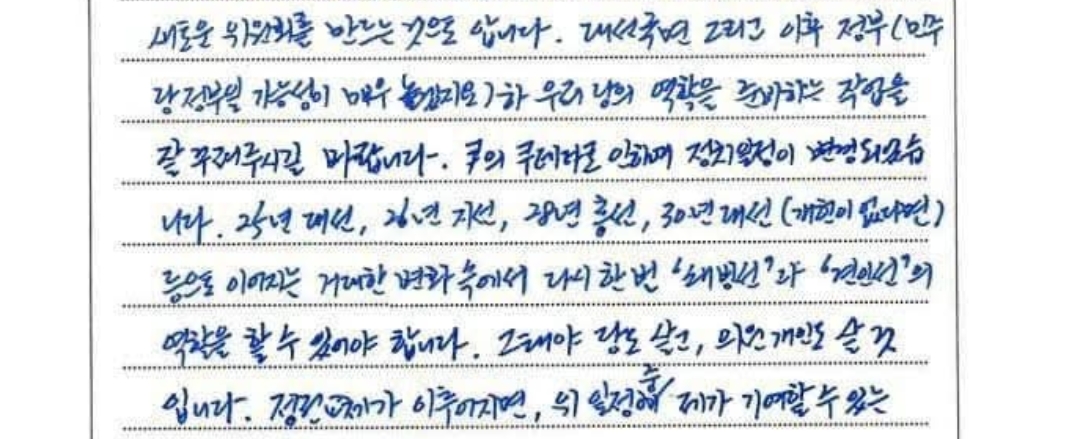 새로운 위원회를 만드는 것으로 압니다. 대선국면 그리고 이후 정부(민주
당정부일 가능성이 매우 높겠지요)하 우리 당의 역할을 준비하는 작업을
잘 꾸려주시길 바랍니다. 尹의 쿠데타로 인하여 정치일정이 변경되었습
니다. 25년 대선, 26년 지선, 28년 총선, 30년 대선(개헌이 없다면)
등으로 이어지는 거대한 변화 속에서 다시 한 번 '쇄빙선'과 '견인선'의
역할을 할 수 있어야 합니다. 그래야 당도 살고, 의원 개인도 살 것
입니다. 정권교체가 이루어지면, 위 일정 중 제가 기여할 수 있는